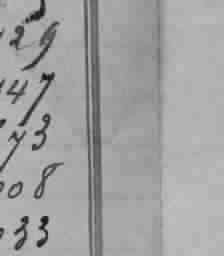 29
47
73
08
33